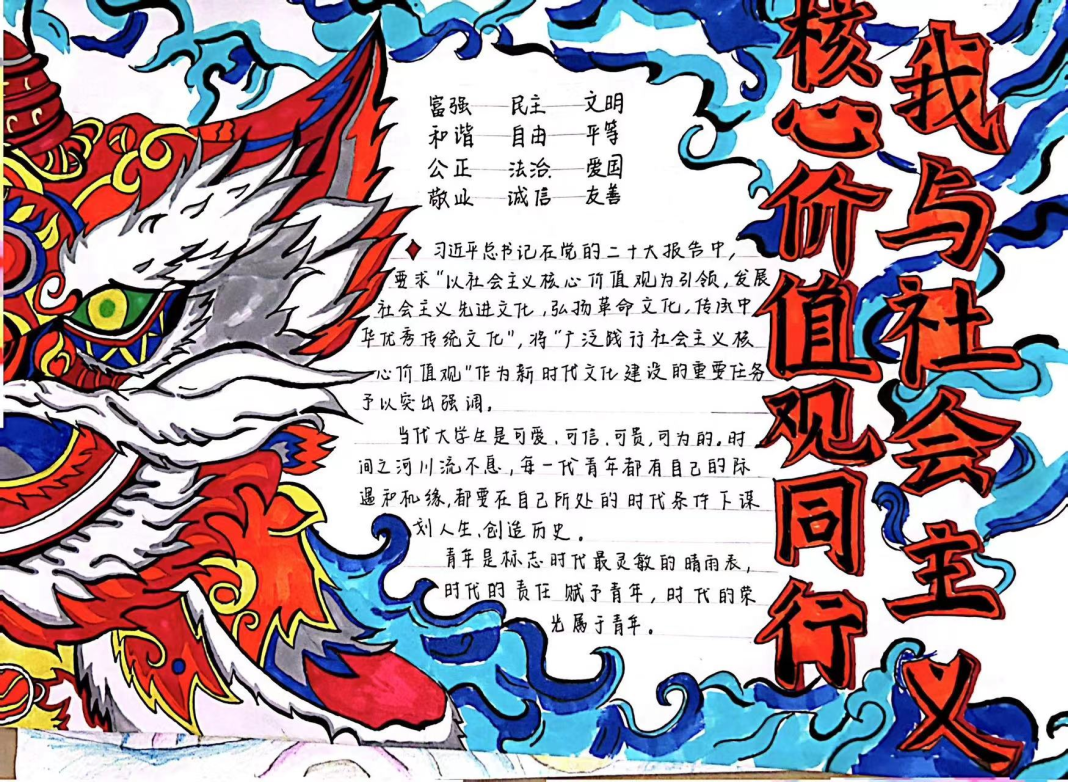 我与社会主义
核心价值观同行
富强——民主——文明
和谐——自由——平等
公正——法治——爱国
敬业——诚信——友善
习近平总书记在党的二十大报告中，
要求“以社会主义核心价值观为引领，发展
社会主义先进文化，弘扬革命文化，传承中
华优秀传统文化”，将“广泛践行社会主义核
心价值观”作为新时代文化建设的重要任务
予以突出强调。
当代大学生是可爱、可信、可贵、可为的。时
间之河川流不息，每一代青年都有自己的际
遇和机缘，都要在自己所处的时代条件下谋
划人生、创造历史。
青年是标志时代最灵敏的晴雨表，
时代的责任赋予青年，时代的荣
光属于青年。